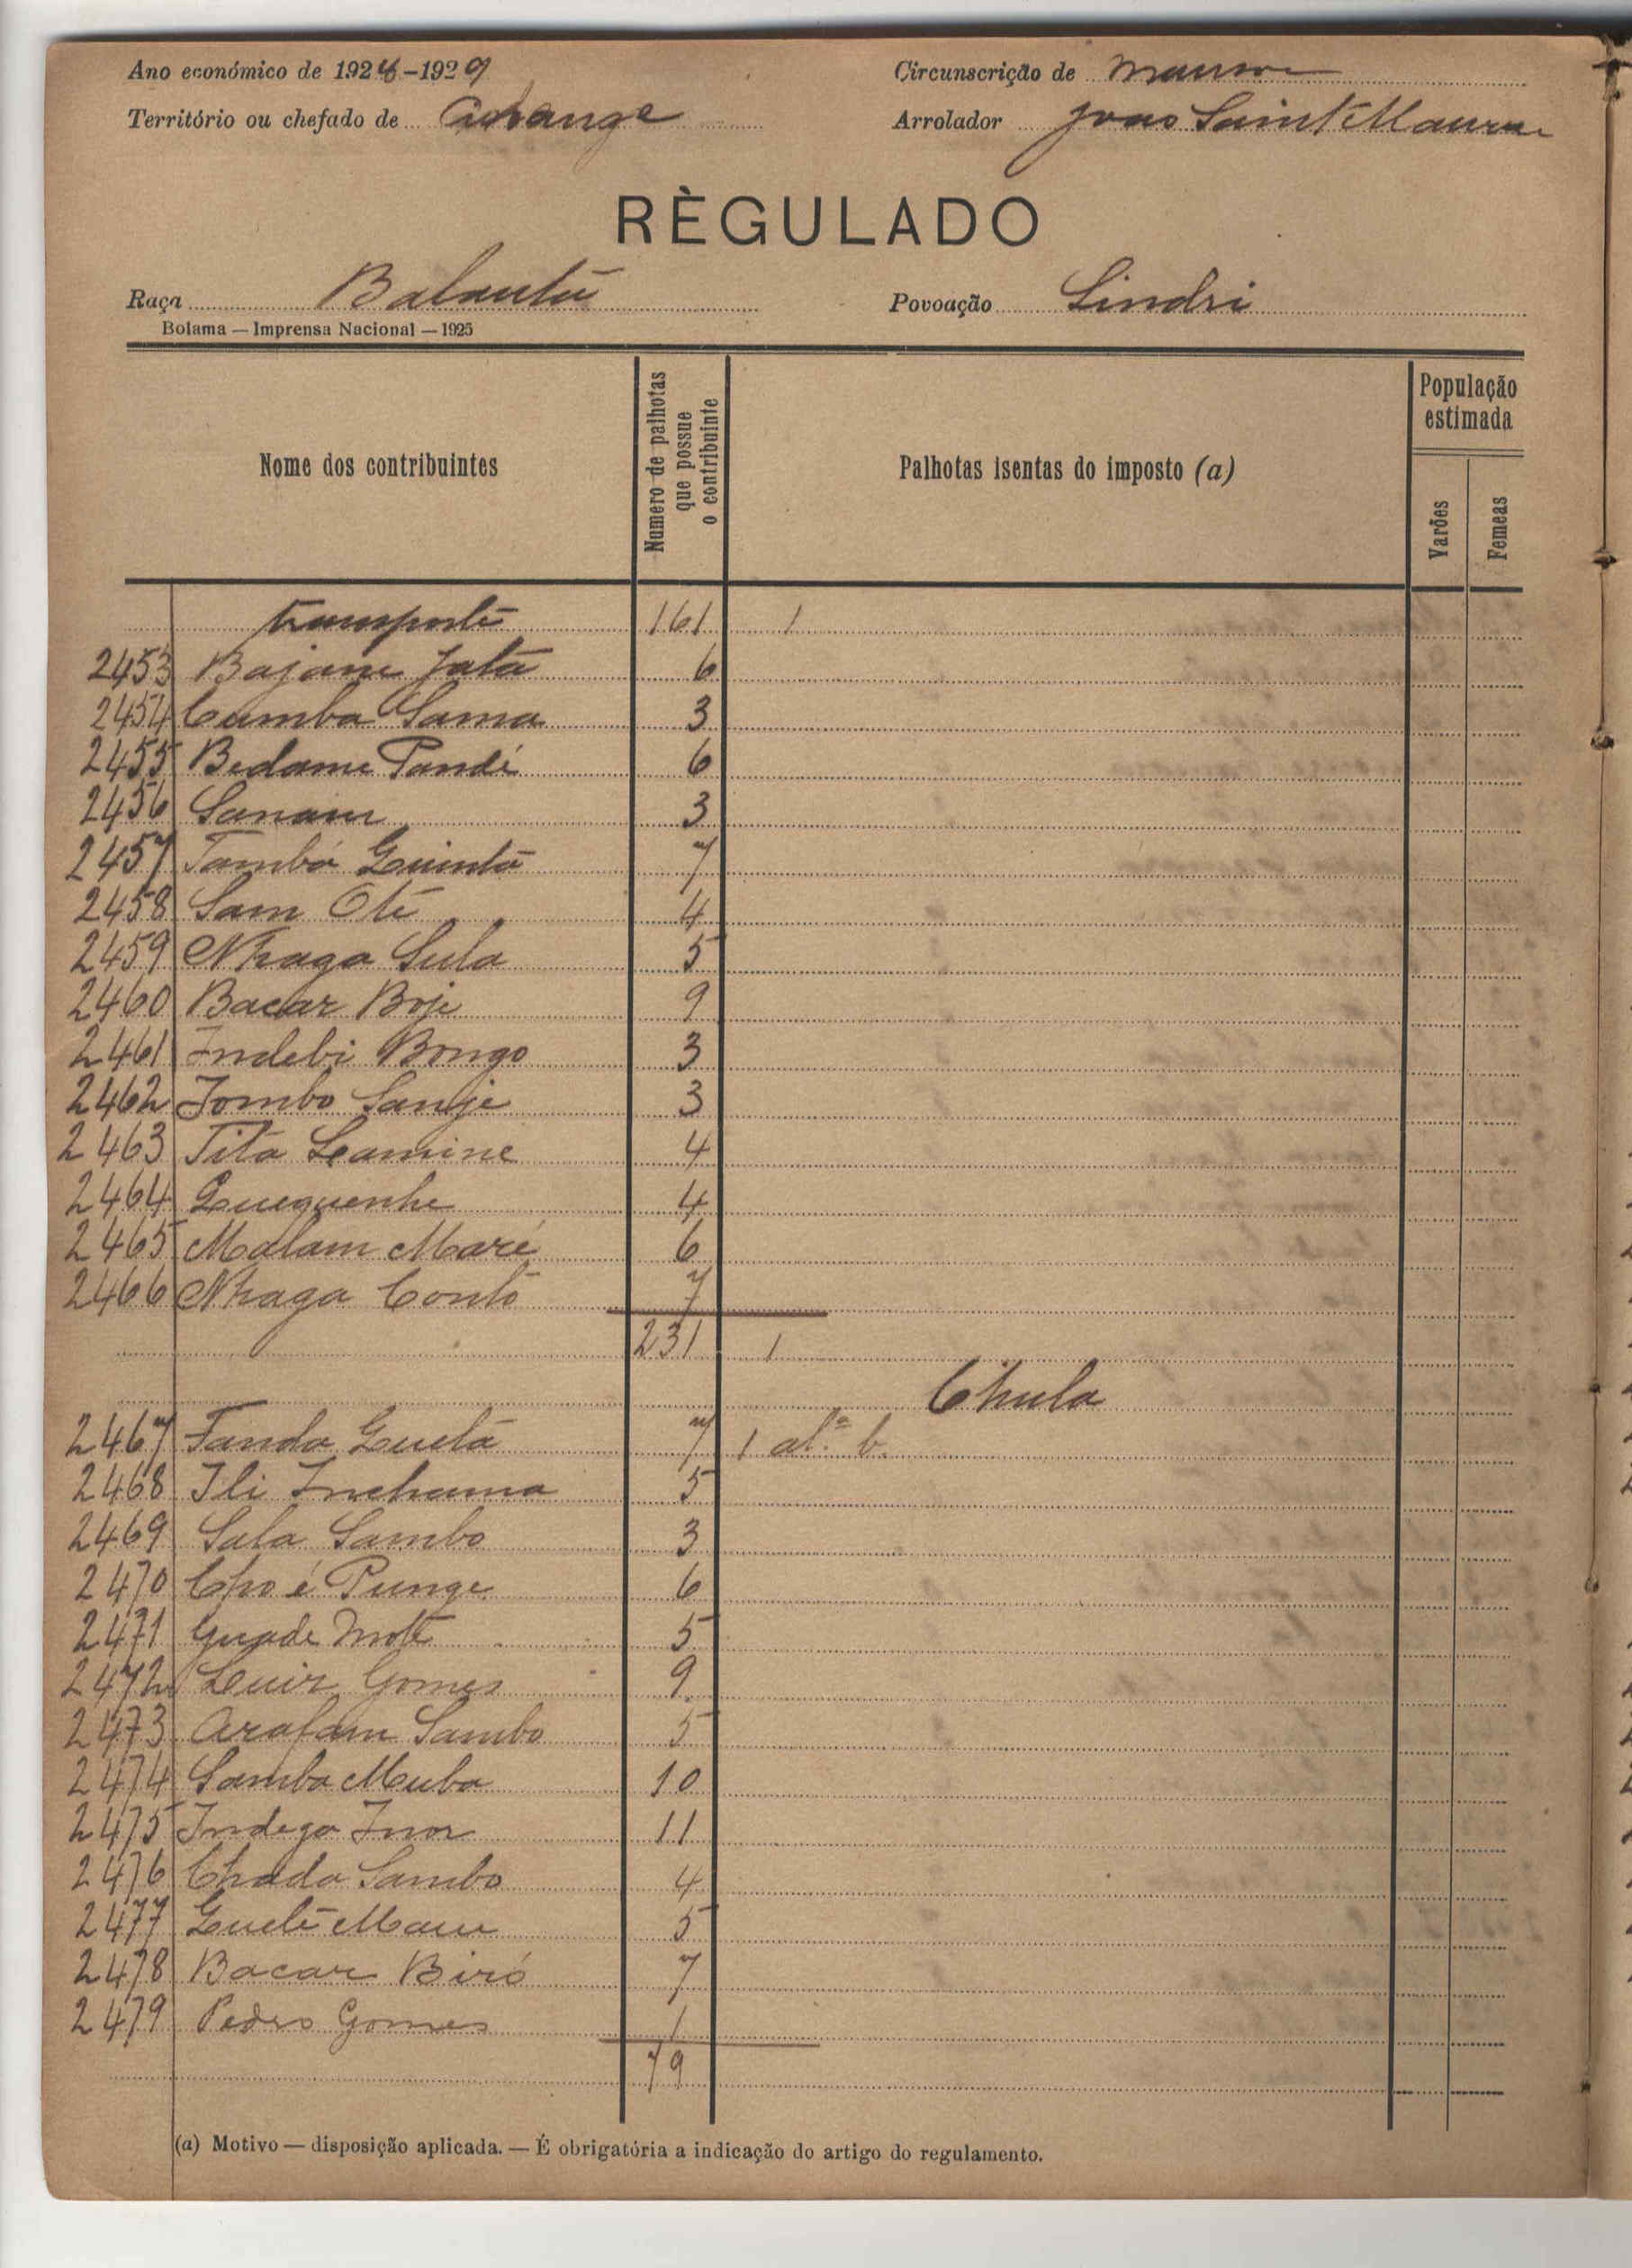 Ano económico de 1928-1929
Circunscrição de Mansoa
Território ou chefado de
Arrolador João Saint Maurice
RÈGULADO
Raça Balanta
Povoação Lindri
Bolama — Imprensa Nacional — 1925
Nome dos contribuintes
Numero de palhotas que possue o contribuinte
Palhotas isentas do imposto (a)
População estimada
Varões
Femeas
transporte 161 1
2453 Bajane Jatá 6
2454 Cumba Sama 3
2455 Bedame Pandé 6
2456 Sanain 3
2457 Tambá Quintá 7
2458 Sam Oté 4
2459 Nhaga Sula 5
2460 Bacar Boje 9
2461 Indebi Bongo 3
2462 Jombo Sanje 3
2463 Titá Lamine 4
2464 Queguenhe 4
2465 Malam Maré 6
2466 Nhaga Contó 7
231 1
Chula
2467 Fanda Quetá 7 1 al.ª b.
2468 Ili Inchama 5
2469 Sala Sambo 3
2470 Choé Punge 6
2471 Guade Moté 5
2472 Luiz Gomes 9
2473 Arafam Sambo 5
2474 Samba Muba 10
2475 Indega Inor 11
2476 Chada Sambo 4
2477 Queté Mane 5
2478 Bacar Biró 7
2479 Pedro Gomes 1
79
(a) Motivo — disposição aplicada. — É obrigatória a indicação do artigo do regulamento.